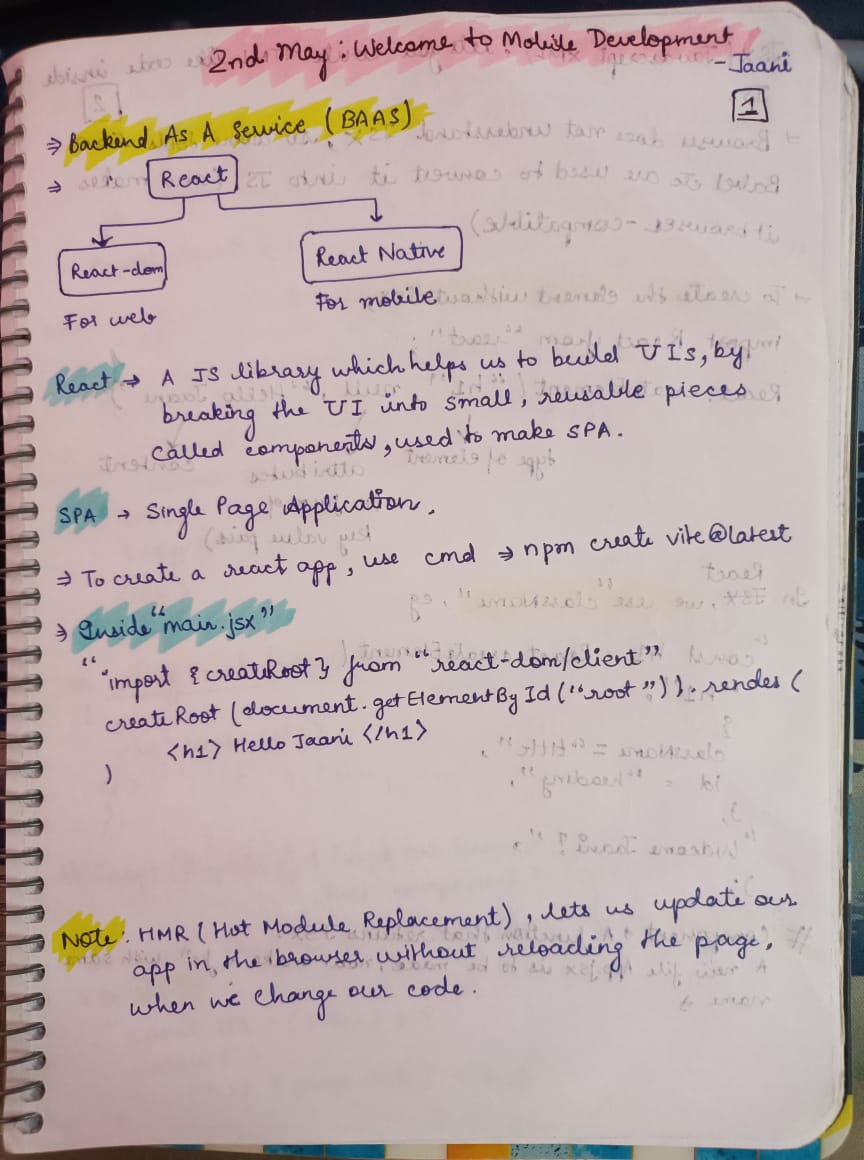 2nd May: Welcome to Mobile Development
- Jaani
1
⇒ Backend As A Service (BAAS)
⇒ React
React-dom
React Native
For web
For mobile
React → A JS library which helps us to build UI's, by
breaking the UI into small, reusable pieces
called components, used to make SPA.
SPA → Single Page Application.
⇒ To create a react app, use cmd → npm create vite@latest
⇒ Inside "main.jsx"
" "import {createRoot} from "react-dom/client"
createRoot (document.getElementById("root")).render(
<h1> Hello Jaani </h1>
)
Note: HMR (Hot Module Replacement), lets us update our
app in the browser without reloading the page,
when we change our code.